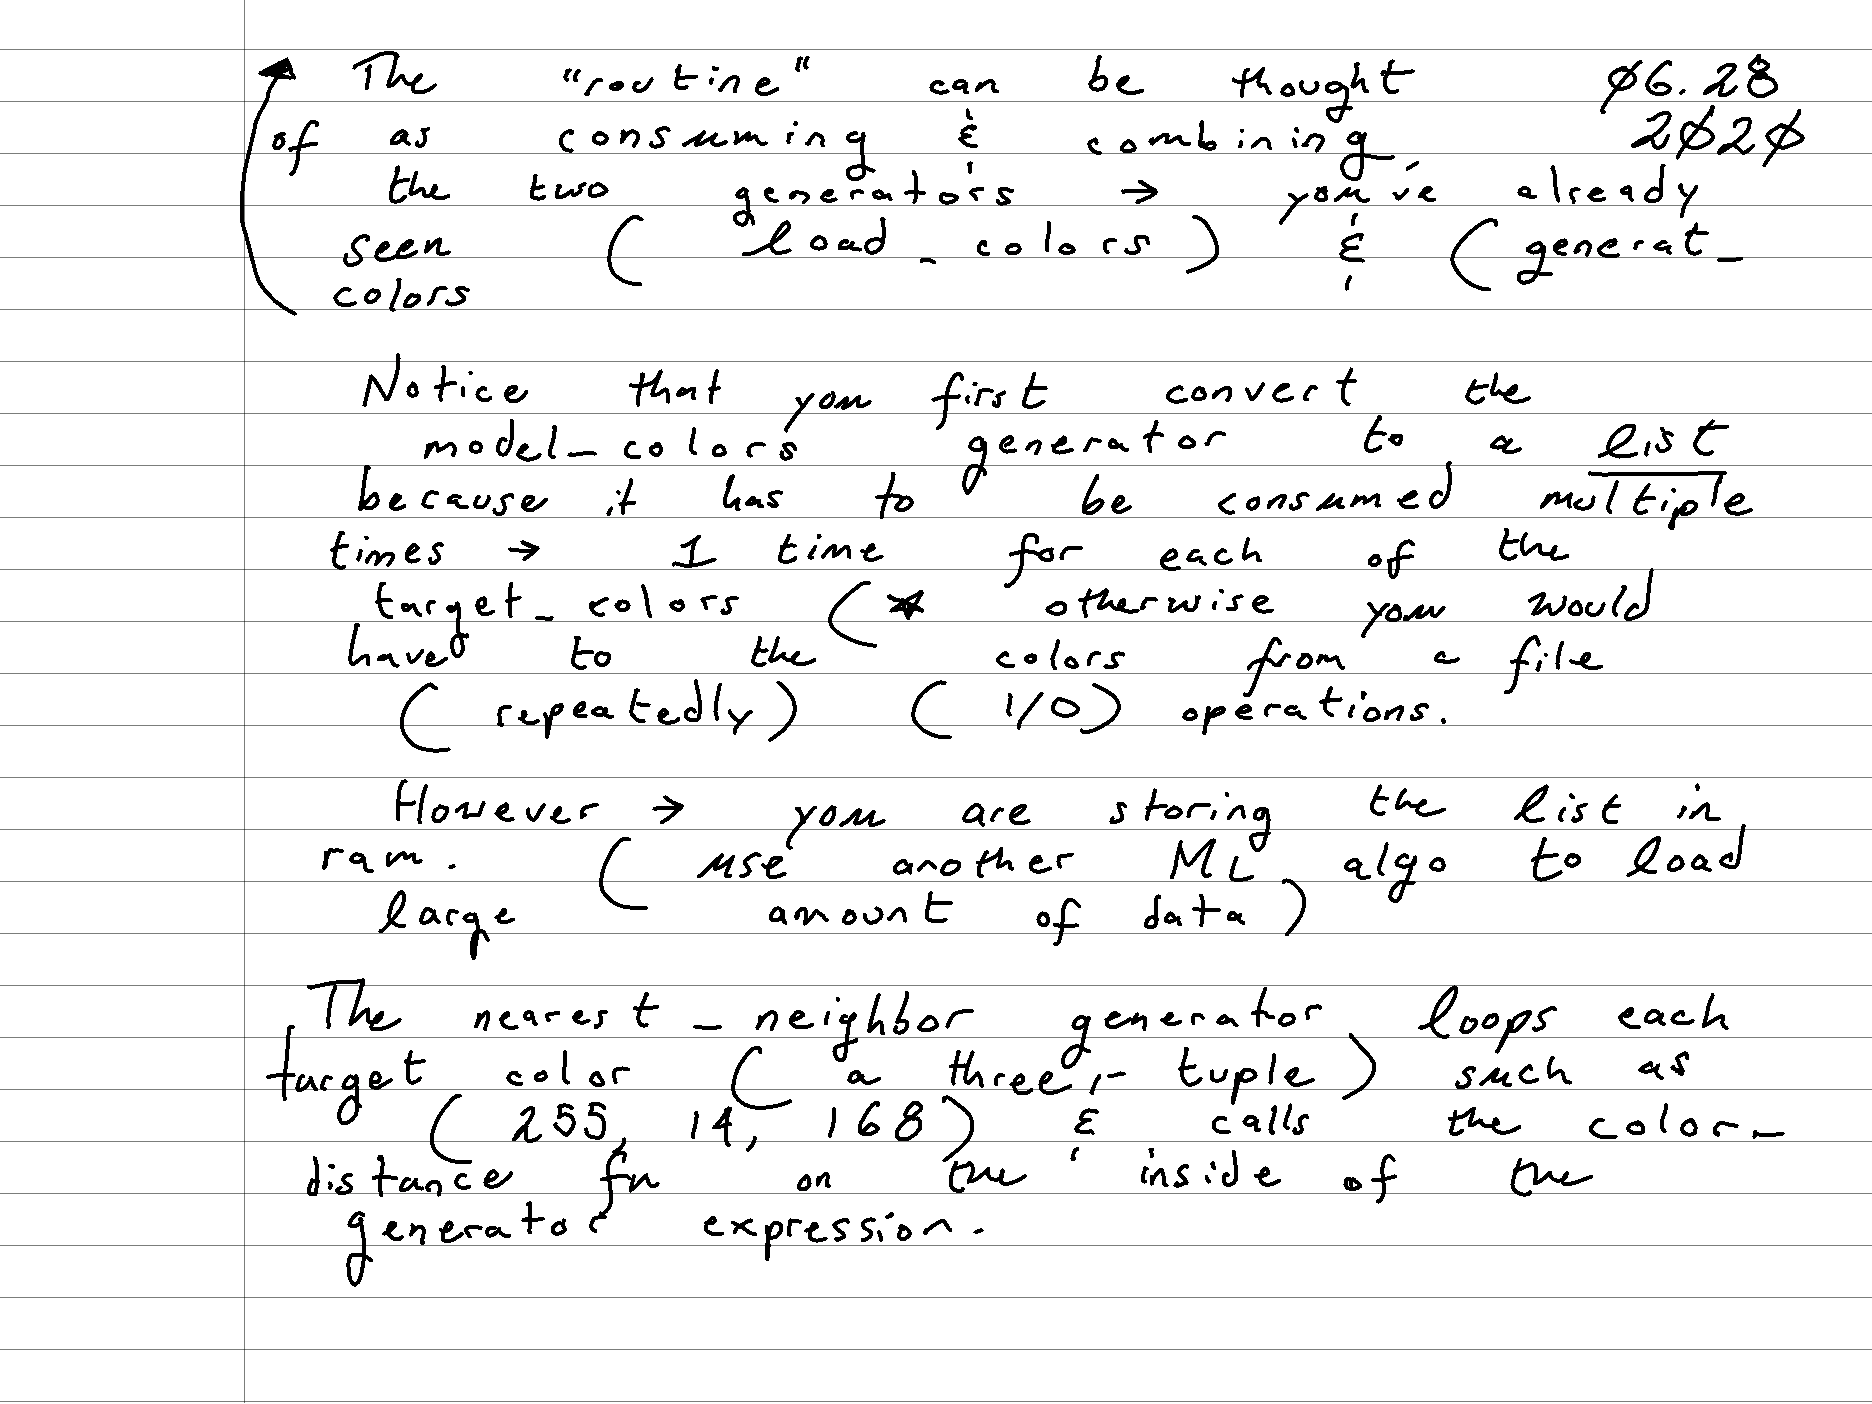 The "routine" can be thought 06.28
of as consuming & combining 2020
the two generators → you've already
seen ( load_colors ) & ( generat_
colors
Notice that you first convert the
model_colors generator to a list
because it has to be consumed multiple
times → 1 time for each of the
target_colors (* otherwise you would
have to the colors from a file
( repeatedly ) ( I/O ) operations.
However → you are storing the list in
ram. ( use another ML algo to load
large amount of data )
The nearest_neighbor generator loops each
target color ( a three-tuple ) such as
( 255, 14, 168 ) & calls the color_
distance fn on the inside of the
generator expression.